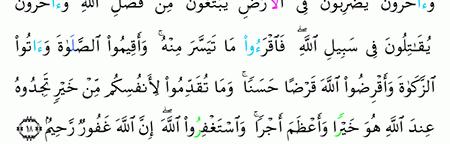 وَءَاخَرُونَ يَضْرِبُونَ فِى اِ۬لَارْضِ يَبْتَغُونَ مِن فَضْلِ اِ۬للَّهِ وَءَاخَرُونَ
يُقَٰتِلُونَ فِى سَبِيلِ اِ۬للَّهِۖ فَاقْرَءُواْ مَا تَيَسَّرَ مِنْهُۖ وَأَقِيمُواْ اُ۬لصَّلَوٰةَ وَءَاتُواْ
اُ۬لزَّكَوٰةَ وَأَقْرِضُواْ اُ۬للَّهَ قَرْضًا حَسَنًاۖ وَمَا تُقَدِّمُواْ لِأَنفُسِكُم مِّنْ خَيْرٍ تَجِدُوهُ
عِندَ اَ۬للَّهِ هُوَ خَيْرًا وَأَعْظَمَ أَجْرًاۖ وَاسْتَغْفِرُواْ اُ۬للَّهَۖ إِنَّ اَ۬للَّهَ غَفُورٌ رَّحِيمٌۖ ١٨